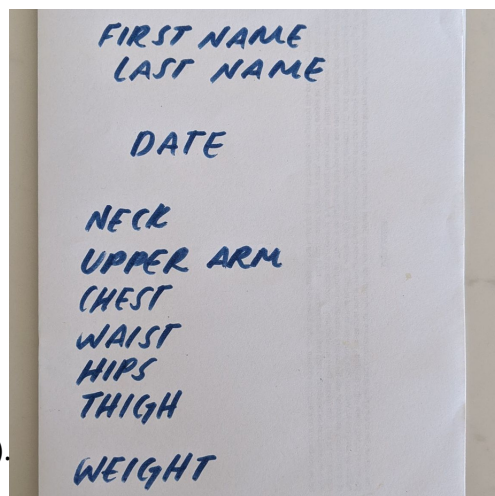 FIRST NAME
LAST NAME
DATE
NECK
UPPER ARM
CHEST
WAIST
HIPS
THIGH
).
WEIGHT